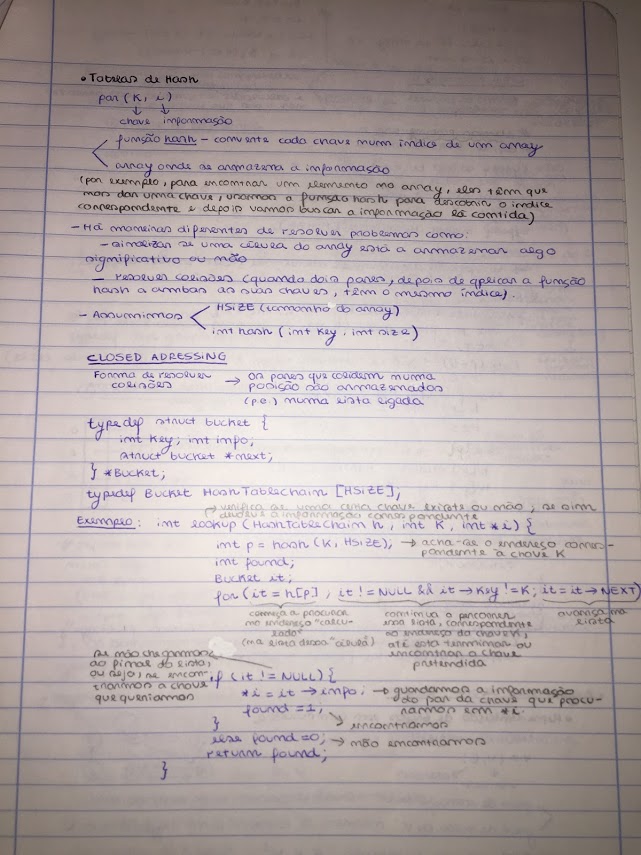 • Tabelas de Hash
par (K, i)
chave informação
função hash – converte cada chave num índice de um array
array onde se armazena a informação
(por exemplo, para encontrar um elemento no array, eles têm que
nos dar uma chave, usamos a função hash para descobrir o índice
correspondente e depois vamos buscar a informação lá contida)
– Há maneiras diferentes de resolver problemas como:
– sinalizar se uma célula do array está a armazenar algo
significativo ou não
– resolver colisões (quando dois pares, depois de aplicar a função
hash a ambas as suas chaves, têm o mesmo índice).
– Assumimos
HSIZE (tamanho do array)
int hash (int key, int size)
CLOSED ADRESSING
Forma de resolver
colisões
→ os pares que colidem numa
posição são armazenados
(p.e.) numa lista ligada
typedef struct bucket {
int key; int info;
struct bucket *next;
} *Bucket;
typedef Bucket HashTableChain [HSIZE];
↱ verifica se uma certa chave existe ou não; se sim
devolve a informação correspondente
Exemplo: int lookup (HashTableChain h, int K, int *i) {
int p = hash (K, HSIZE); → acha-se o endereço corres-
pondente à chave K
int found;
Bucket it;
for (it = h[p]; it != NULL && it → key != K; it = it → NEXT)
começa a procurar
no endereço "calcu-
lado"
(na lista dessa "célula")
continua a percorrer
essa lista, correspondente
ao endereço da chave K,
até esta terminar ou
encontrar a chave
pretendida
avança na
lista
se não chegarmos
ao final da lista,
ou seja, se encon-
trarmos a chave
que queríamos
if (it != NULL) {
*i = it → info; → guardamos a informação
do par da chave que procu-
ramos em *i.
found = 1;
↘ encontramos
}
else found = 0; → não encontramos
return found;
}